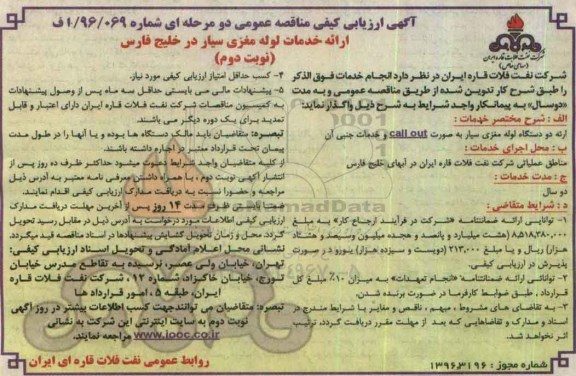 آگهی ارزیابی کیفی مناقصه عمومی دو مرحله ای شماره ۱/۹۶/۰۶۹ ف
ارائه خدمات لوله مغزی سیار در خلیج فارس
(نوبت دوم)
شرکت نفت فلات قاره ایران
(سهامی خاص)
شرکت نفت فلات قاره ایران در نظر دارد انجام خدمات فوق الذکر
را طبق شرح کار تدوین شده از طریق مناقصه عمومی و به مدت
«دوسال» به پیمانکار واجد شرایط به شرح ذیل واگذار نماید:
الف : شرح مختصر خدمات :
ارئه دو دستگاه لوله مغزی سیار به صورت call out و خدمات جنبی آن
ب : محل اجرای خدمات :
مناطق عملیاتی شرکت نفت فلات قاره ایران در آبهای خلیج فارس
ج : مدت خدمات :
دو سال
د : شرایط متقاضی :
۱- توانایی ارائه ضمانتنامه «شرکت در فرآیند ارجاع کار» به مبلغ
۸,۵۱۸,۳۸۰,۰۰۰ (هشت میلیارد و پانصد و هجده میلیون وسیصد و هشتاد
هزار) ریال و یا مبلغ ۲۱۳,۰۰۰ (دویست و سیزده هزار) یورو در صورت
پذیرش در ارزیابی کیفی.
۲- توانائی ارائه ضمانتنامه «انجام تعهدات» به میزان ۱۰٪ مبلغ کل
قرارداد , طبق ضوابط کارفرما در صورت برنده شدن.
۳- به تقاضای های مشروط ، مبهم ، ناقص و مغایر با شرایط مندرج در
اسناد و مدارک و تقاضاهایی که بعد از مهلت مقرر دریافت گردد، ترتیب
اثر نخواهد شد.
شماره مجوز : ۱۳۹۶,۳۱۹۶
۴- کسب حداقل امتیاز ارزیابی کیفی مورد نیاز.
۵- پیشنهادات مالی می بایستی حداقل سه ماه پس از وصول پیشنهادات
به کمیسیون مناقصات شرکت نفت فلات قاره ایران دارای اعتبار و قابل
تمدید برای یک دوره دیگر می باشند.
تبصره: متقاضیان باید مالک دستگاه ها بوده و یا آنها را در طول مدت
پیمان تحت قرارداد معتبر در اجاره داشته باشند.
از کلیه متقاضیان واجد شرایط دعوت میشود حداکثر ظرف ده روز پس از
انتشار آگهی نوبت دوم ، با همراه داشتن معرفی نامه معتبر به آدرس ذیل
مراجعه و حضورا نسبت به دریافت مدارک ارزیابی کیفی اقدام نمایند.
ضمنا بایستی ظرف مدت ۱۴ روز پس از آخرین مهلت دریافت مدارک
ارزیابی کیفی اطلاعات مورد درخواست به آدرس ذیل در مقابل رسید تحویل
گردد. محل و زمان تحویل گشایش پیشنهادها در اسناد مناقصه قید میگردد.
نشانی محل اعلام آمادگی و تحویل اسناد ارزیابی کیفی:
تهران، خیابان ولی عصر، نرسیده به تقاطع مدرس خیابان
تورج، خیابان خاکزاد، شماره ۱۲، شرکت نفت فلات قاره
ایران، طبقه ۵ ، امور قرارداد ها
تبصره: متقاضیان می توانند جهت کسب اطلاعات بیشتر در روز آگهی
نوبت دوم به سایت اینترنتی این شرکت به نشانی
www.iooc.co.ir مراجعه نمایند.
روابط عمومی نفت فلات قاره ای ایران